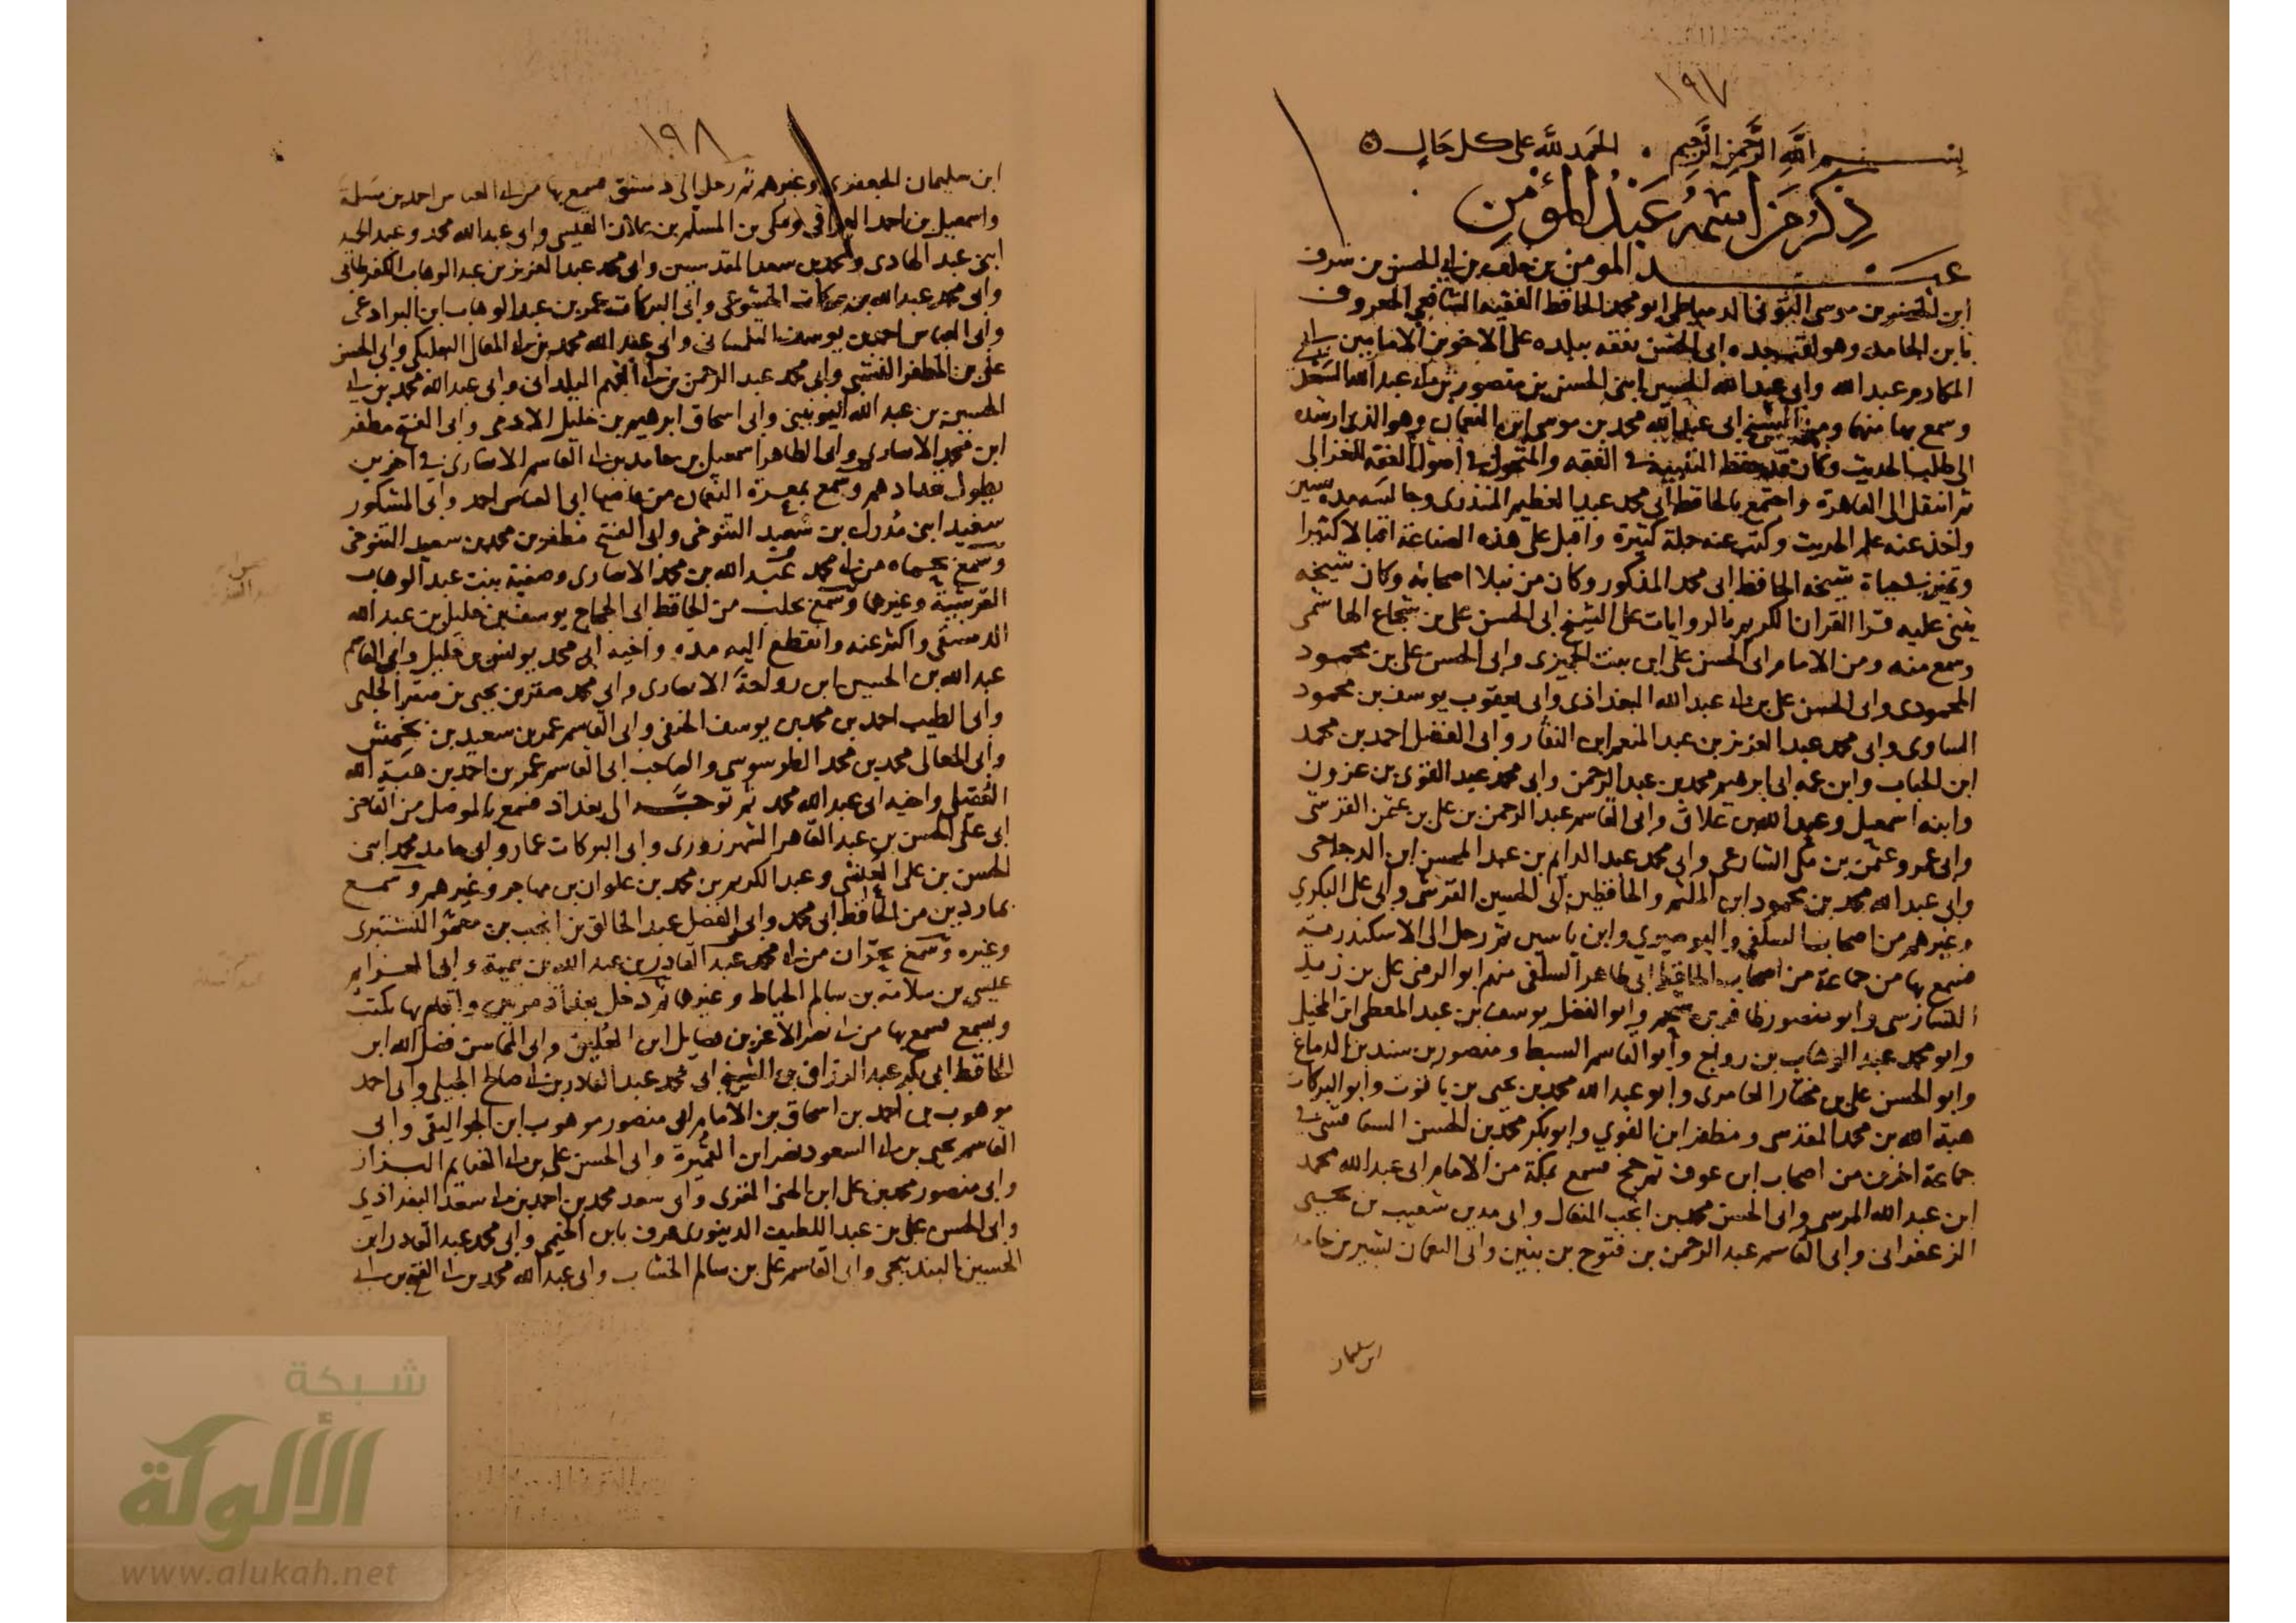 ١٩٧
بسم الله الرحمن الرحيم . الحمد لله على كل حال
ذكر من اسمه عبد المؤمن
عبد المومن بن خلف بن ابي الحسن بن شرف
ابن الخضر بن موسى التوني الدمياطي ابو محمد الحافظ الفقيه الشافعي المعروف
بابن الجامد وهو لقب جده ابي الحسن تفقه ببلده على الاخوين الامامين ابي
المكارم عبد الله وابي عبد الله الحسين ابني الحسن بن منصور بن ابي عبد الله السعدي
وسمع بها منهما ومن الشيخ ابي عبد الله محمد بن موسى ابن النعمان وهو الذي ارشده
الى طلب الحديث وكان قد حفظ التنبيه في الفقه والمنخول في اصول الفقه للغزالي
ثم انتقل الى القاهرة واجتمع بالحافظ ابي محمد عبد العظيم المنذري وجالسه مدة سنين
واخذ عنه علم الحديث وكتب عنه جملة كثيرة واقبل على هذه الصناعة اقبالا كثيرا
وتميز بحياة شيخه الحافظ ابي محمد المذكور وكان من نبلا اصحابه وكان شيخه
يثني عليه قرا القران الكريم بالروايات على الشيخ ابي الحسن علي بن شجاع الهاشمي
وسمع منه ومن الامام ابي الحسن علي ابن بنت الجميزى وابي الحسن علي بن محمود
المحمودى وابي الحسن علي بن ابي عبد الله البغداذى وابي يعقوب يوسف بن محمود
الساوى وابي محمد عبد العزيز بن عبد المنعم ابن النقار وابي الفضل احمد بن محمد
ابن الحباب وابن عمه ابي ابرهيم محمد بن عبد الرحمن وابي محمد عبد القوى بن عزون
وابنه اسمعيل وعبد الله بن علاق وابي القاسم عبد الرحمن بن علي بن عثمن القرشي
وابي عمرو عثمن بن مكي الشارعي وابي محمد عبد الدايم بن عبد المحسن ابن الدجاجي
وابي عبد الله محمد بن محمود ابن الملثم والحافظين ابي الحسين القرشي وابي علي البكري
وغيرهم من اصحاب السلفي والبوصيري وابن ياسين ثم رحل الى الاسكندرية
فسمع بها من جماعة من اصحاب الحافظ ابي طاهر السلفي منهم ابو الرضى علي بن زيد
التسارسي وابو منصور ظافر بن شحم وابو الفضل يوسف بن عبد المعطي ابن المخيلي
وابو محمد عبد الوهاب بن رواج وابو القاسم السبط ومنصور بن سند بن الدماغ
وابو الحسن علي بن مختار العامرى وابو عبد الله محمد بن يحيى بن ياقوت وابو البركات
هبة الله بن محمد المقدسي ومظفر ابن الفوي وابو بكر محمد بن الحسن السفاقسي في
جماعة اخرين من اصحاب ابن عوف ثم حج فسمع بمكة من الامام ابي عبد الله محمد
ابن عبد الله المرسي وابي الحسن محمد بن انجب النعال وابي مدين شعيب بن يحيى
الزعفراني وابي القاسم عبد الرحمن بن فتوح بن بنين وابي النعمان بشير بن حامد
ابن سليمان
١٩٨
ابن سليمان الجعفرى وغيرهم ثم رحل الى دمشق فسمع بها من ابي العباس احمد بن مسلمة
واسمعيل بن احمد العراقي ومكي بن المسلم بن علان القيسي وابي عبد الله محمد وعبد الحميد
ابني عبد الهادى ومحمد بن سعد المقدسيين وابي محمد عبد العزيز بن عبد الوهاب الكفرطابي
وابي محمد عبد الله بن بركات الخشوعي وابي البركات عمر بن عبد الوهاب ابن البراذعي
وابي العباس احمد بن يوسف التلمساني وابي عبد الله محمد بن ابي المعالي البعلبكي وابي الحسن
علي بن المظفر النشبي وابي محمد عبد الرحمن بن ابي الفهم اليلداني وابي عبد الله محمد بن ابي
الحسين بن عبد الله اليونيني وابي اسحاق ابرهيم بن خليل الادمي وابي الفتح مظفر
ابن محمد الانصارى وابي الطاهر اسمعيل بن حامد بن ابي القاسم الانصارى في اخرين
يطول عدادهم وسمع بمعرة النعمان من قاضيها ابي العباس احمد وابي المشكور
سعيد ابني مدرك بن سعيد التنوخي وابي الفتح مظفر بن محمد بن سعيد التنوخي
وسمع بحماه من ابي محمد عبد الله بن محمد الانصارى وصفية بنت عبد الوهاب
القرشية وغيرهما وسمع بحلب من الحافظ ابي الحجاج يوسف بن خليل بن عبد الله
الدمشقي واكثر عنه وانقطع اليه مدة واخيه ابي محمد يونس بن خليل وابي القاسم
عبد الله بن الحسين ابن رواحة الانصارى وابي محمد صقر بن يحيى بن صقر الحلبي
وابي الطيب احمد بن محمد بن يوسف الحنفي وابي القاسم عمر بن سعيد بن تخمش
وابي المعالي محمد بن محمد الطرسوسي والصاحب ابي القاسم عمر بن احمد بن هبة الله
العقيلي واخيه ابي عبد الله محمد ثم توجه الى بغداد فسمع بالموصل من القاضي
ابي علي الحسن بن عبد القاهر الشهرزورى وابي البركات عمار وابي حامد محمد ابني
الحسن بن علي وعبد الكريم بن محمد بن علوان بن مهاجر وغيرهم وسمع
بماردين من الحافظ ابي محمد وابي الفضل عبد الخالق بن انجب بن معمر النشتبرى
وغيره وسمع بحران من ابي محمد عبد القادر بن عبد الله بن تيمية وابي العزايم
عيسى بن سلامة بن سالم الخياط وغيرهما ثم دخل بغداد مرتين واقام بها يكتب
ويسمع فسمع بها من ابي نصر الاعز بن فضايل ابن العليق وابي المحاسن فضل الله ابن
الحافظ ابي بكر عبد الرزاق بن الشيخ ابي محمد عبد القادر بن ابي صالح الجيلي وابي احمد
موهوب بن احمد بن اسحاق بن الامام ابي منصور موهوب ابن الجواليقي وابي
القاسم يحيى بن ابي السعود نصر ابن القميرة وابي الحسن علي بن ابي الغنايم البزاز
وابي منصور محمد بن علي ابن الهني المقرى وابي سعد محمد بن احمد بن ابي سعد البغداذي
وابي الحسن علي بن عبد اللطيف الدينورى عرف بابن الخيمي وابي محمد عبد القادر ابن
الحسين البندنيجي وابي القاسم علي بن سالم الخشاب وابي عبد الله محمد بن ابي الفتح بن ابي
شبكة
الألوكة
www.alukah.net